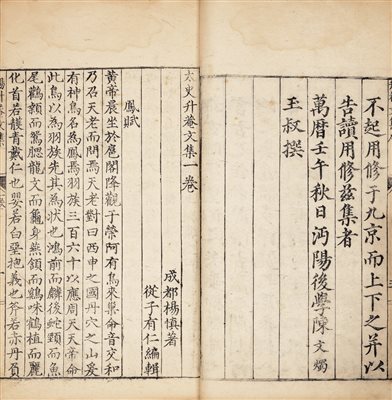 不起用修于九京而上下之并以
告讀用修茲集者
萬曆壬午秋日沔陽後學陳文燭
玉叔撰
太史升菴文集一卷
成都楊慎著
從子有仁編輯
鳳賦
黃帝晨坐於扈閣降觀于榮阿有鳥來巢命音交和
乃召天老而問焉天老對曰西申之國丹穴之山爰
有神鳥名為鳳焉羽族三百六十以應周天天帝命
此鳥以為羽族先其為狀也鴻前而麟後蛇頸而魚
尾鸛顙而鴛腮龍文而龜身燕頷而雞咮鶴植而麗
化首若䕶青戴仁也嬰若白堊抱義也背右赤丹負